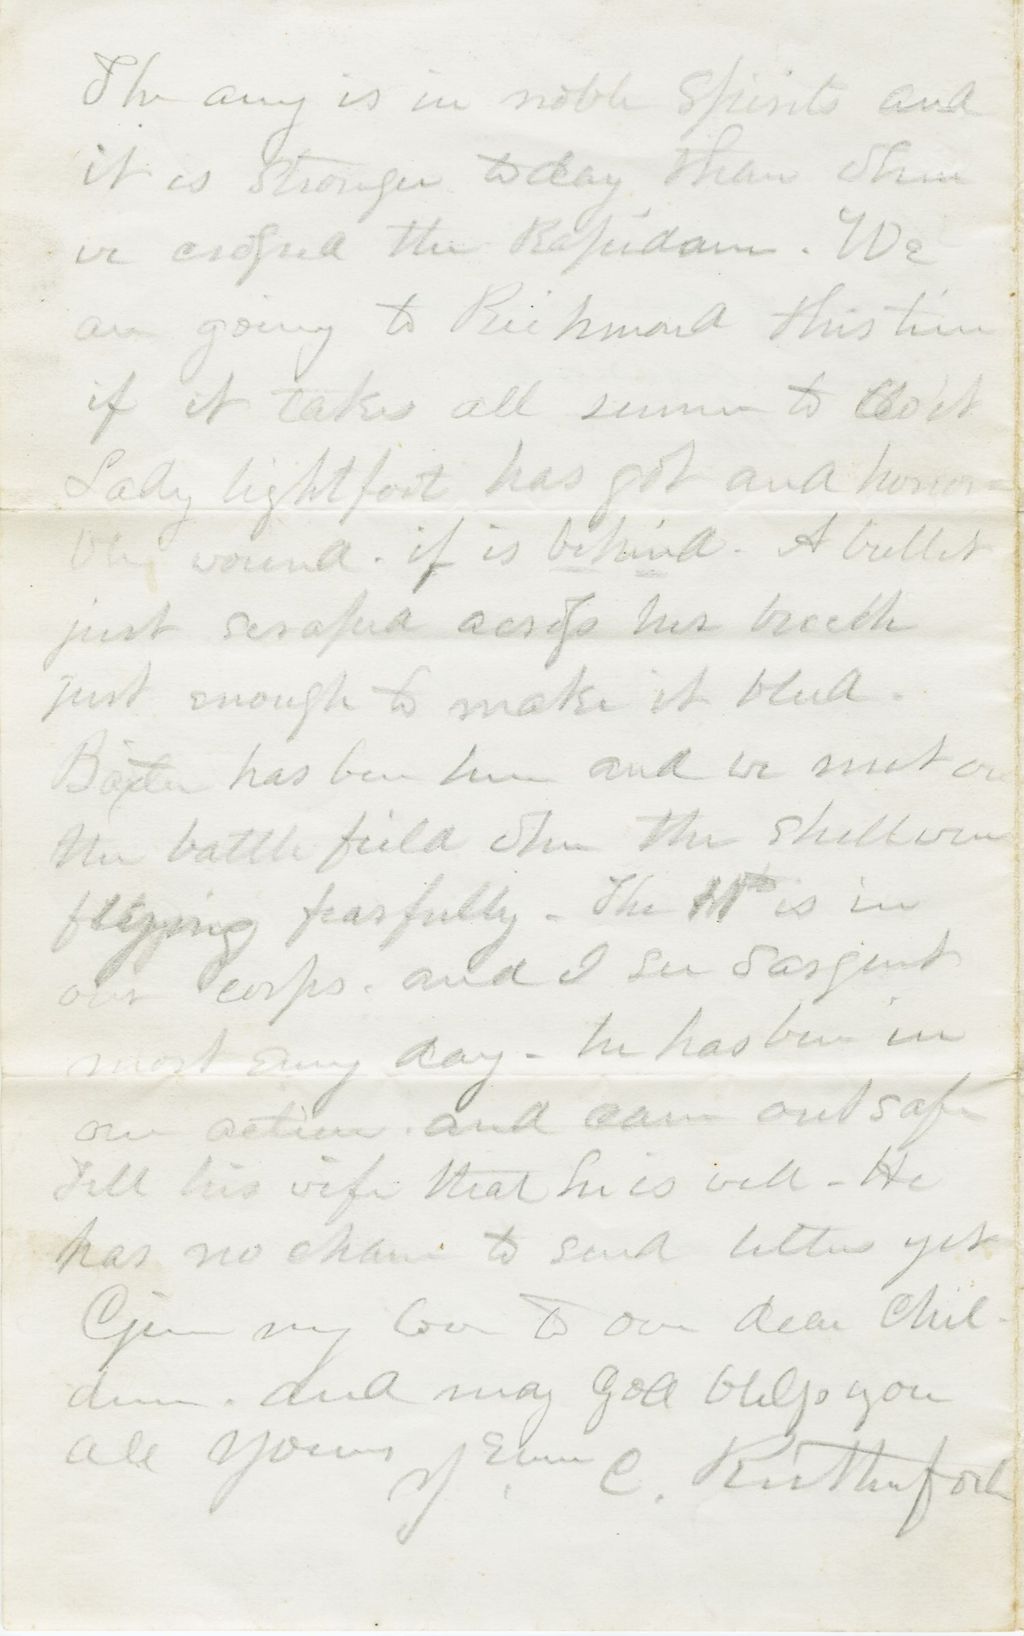 The army is in noble spirits and
it is stronger today than when
we crossed the Rapidann. We
are going to Richmond this time
if it takes all summer to do it
Lady lightfoot has got and honor=
ble wound. if is behind. A bullet
just scraped across her breech
just enough to make it bleed.
Baxter has been here and we met on
the battle field when the shell were
flying fearfully - The 11th is in
our corps. and I see Sargent
most every day - he has been in
one action. and came out safe
Tell his wife that he is well - He
has no chance to send letters yet
Give my love to our dear Chil-
dren. and may God bless you
all Yours Ever
J. C. Rutherford